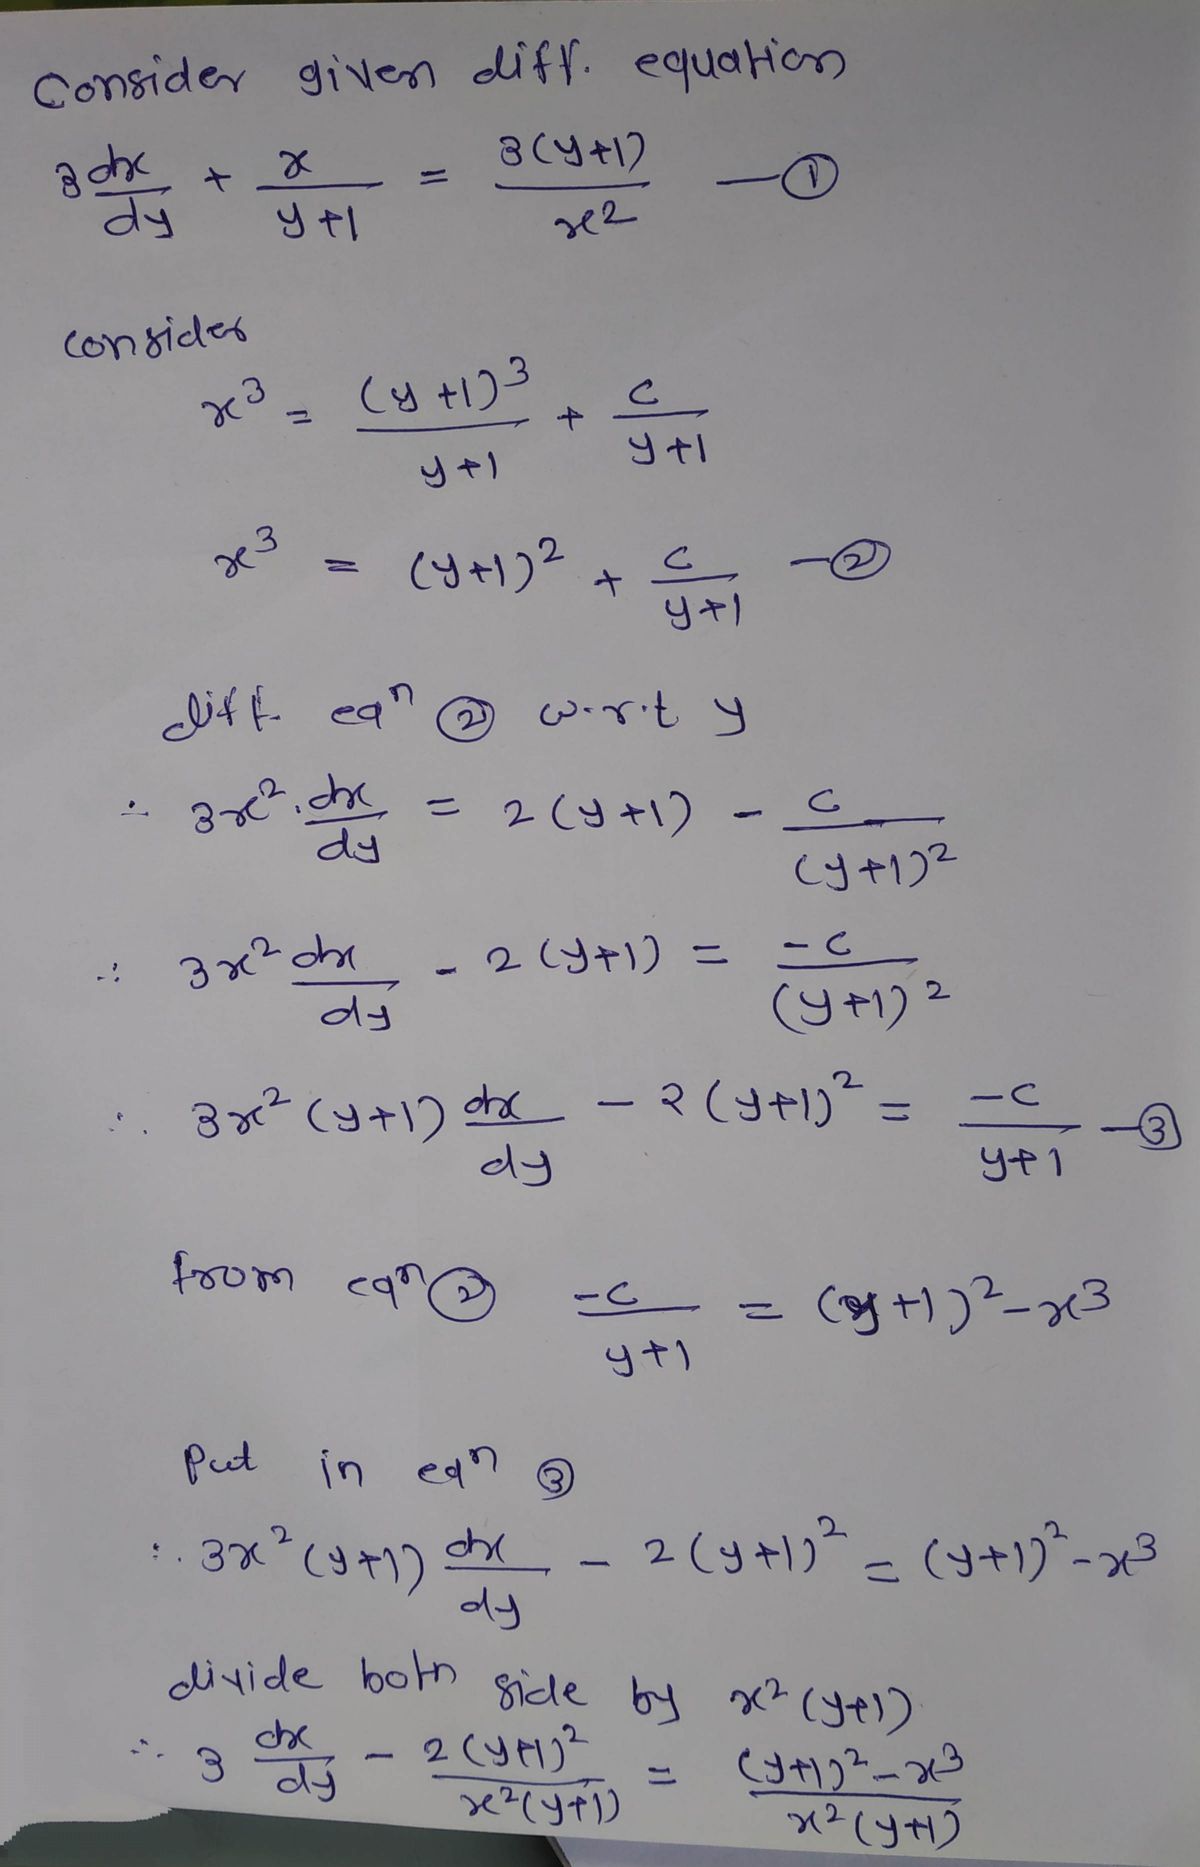 Consider given diff. equation
3 dx/dy + x/(y+1) = 3(y+1)/x² —①
consider
x³ = (y+1)³/(y+1) + c/(y+1)
x³ = (y+1)² + c/(y+1) —②
diff. eqⁿ ② w.r.t y
∴ 3x². dx/dy = 2(y+1) - c/(y+1)²
∴ 3x² dx/dy - 2(y+1) = -c/(y+1)²
∴ 3x²(y+1) dx/dy - 2(y+1)² = -c/(y+1) —③
from eqⁿ ② -c/(y+1) = (y+1)² - x³
Put in eqⁿ ③
∴ 3x²(y+1) dx/dy - 2(y+1)² = (y+1)² - x³
divide both side by x²(y+1)
∴ 3 dx/dy - 2(y+1)²/x²(y+1) = (y+1)² - x³/x²(y+1)